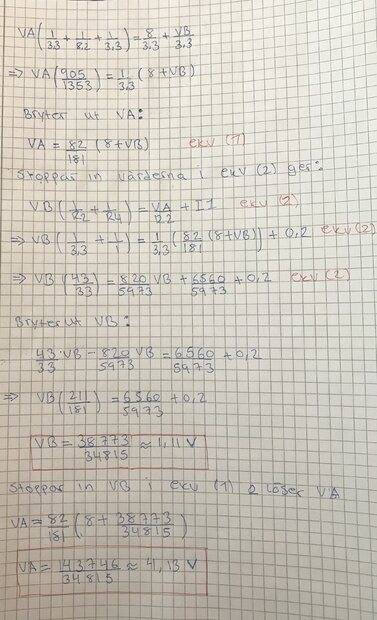 VA(1/3,3 + 1/82 + 1/3,3) = 8/3,3 + VB/3,3
⇒ VA(905/1353) = 1/3,3 (8+VB)
Bryter ut VA:
VA = 82/181 (8+VB) ekv (1)
Stoppar in värderna i ekv (2) ger:
VB(1/R2 + 1/R4) = VA/R2 + I1 ekv (2)
⇒ VB(1/3,3 + 1/1) = 1/3,3 (82/181 (8+VB)) + 0,2 ekv(2)
⇒ VB(43/33) = 820/5973 VB + 6560/5973 + 0,2 ekv(2)
Bryter ut VB:
43/33 · VB - 820/5973 VB = 6560/5973 + 0,2
⇒ VB(211/181) = 6560/5973 + 0,2
VB = 38773/34815 ≈ 1,11 V
Stoppar in VB i ekv (1) & löser VA
VA = 82/181 (8 + 38773/34815)
VA = 143746/34815 ≈ 4,13 V